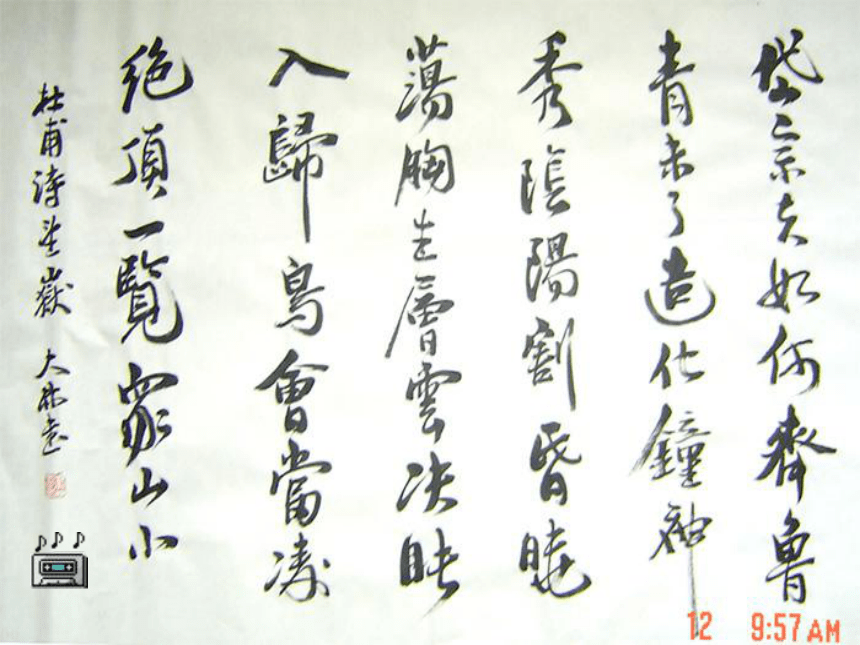 岱宗夫如何齊魯
青未了造化鐘神
秀陰陽割昏曉
蕩胸生層雲决眦
入歸鳥會當凌
絶頂一覽衆山小
杜甫诗望嶽 大林
12 9:57AM